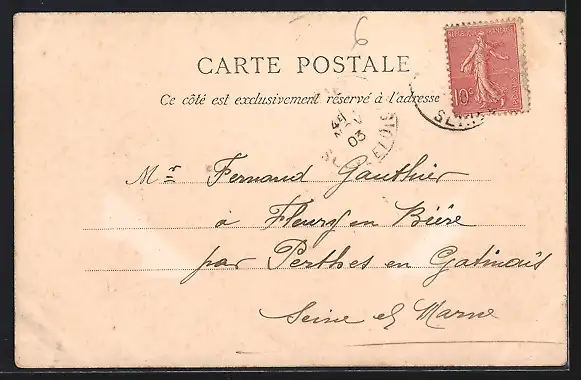 6
CARTE POSTALE
Ce côté est exclusivement réservé à l'adresse
10c
03
Mr Fernand Gauthier
à Fleury en Bière
par Perthes en Gatinais
Seine et Marne